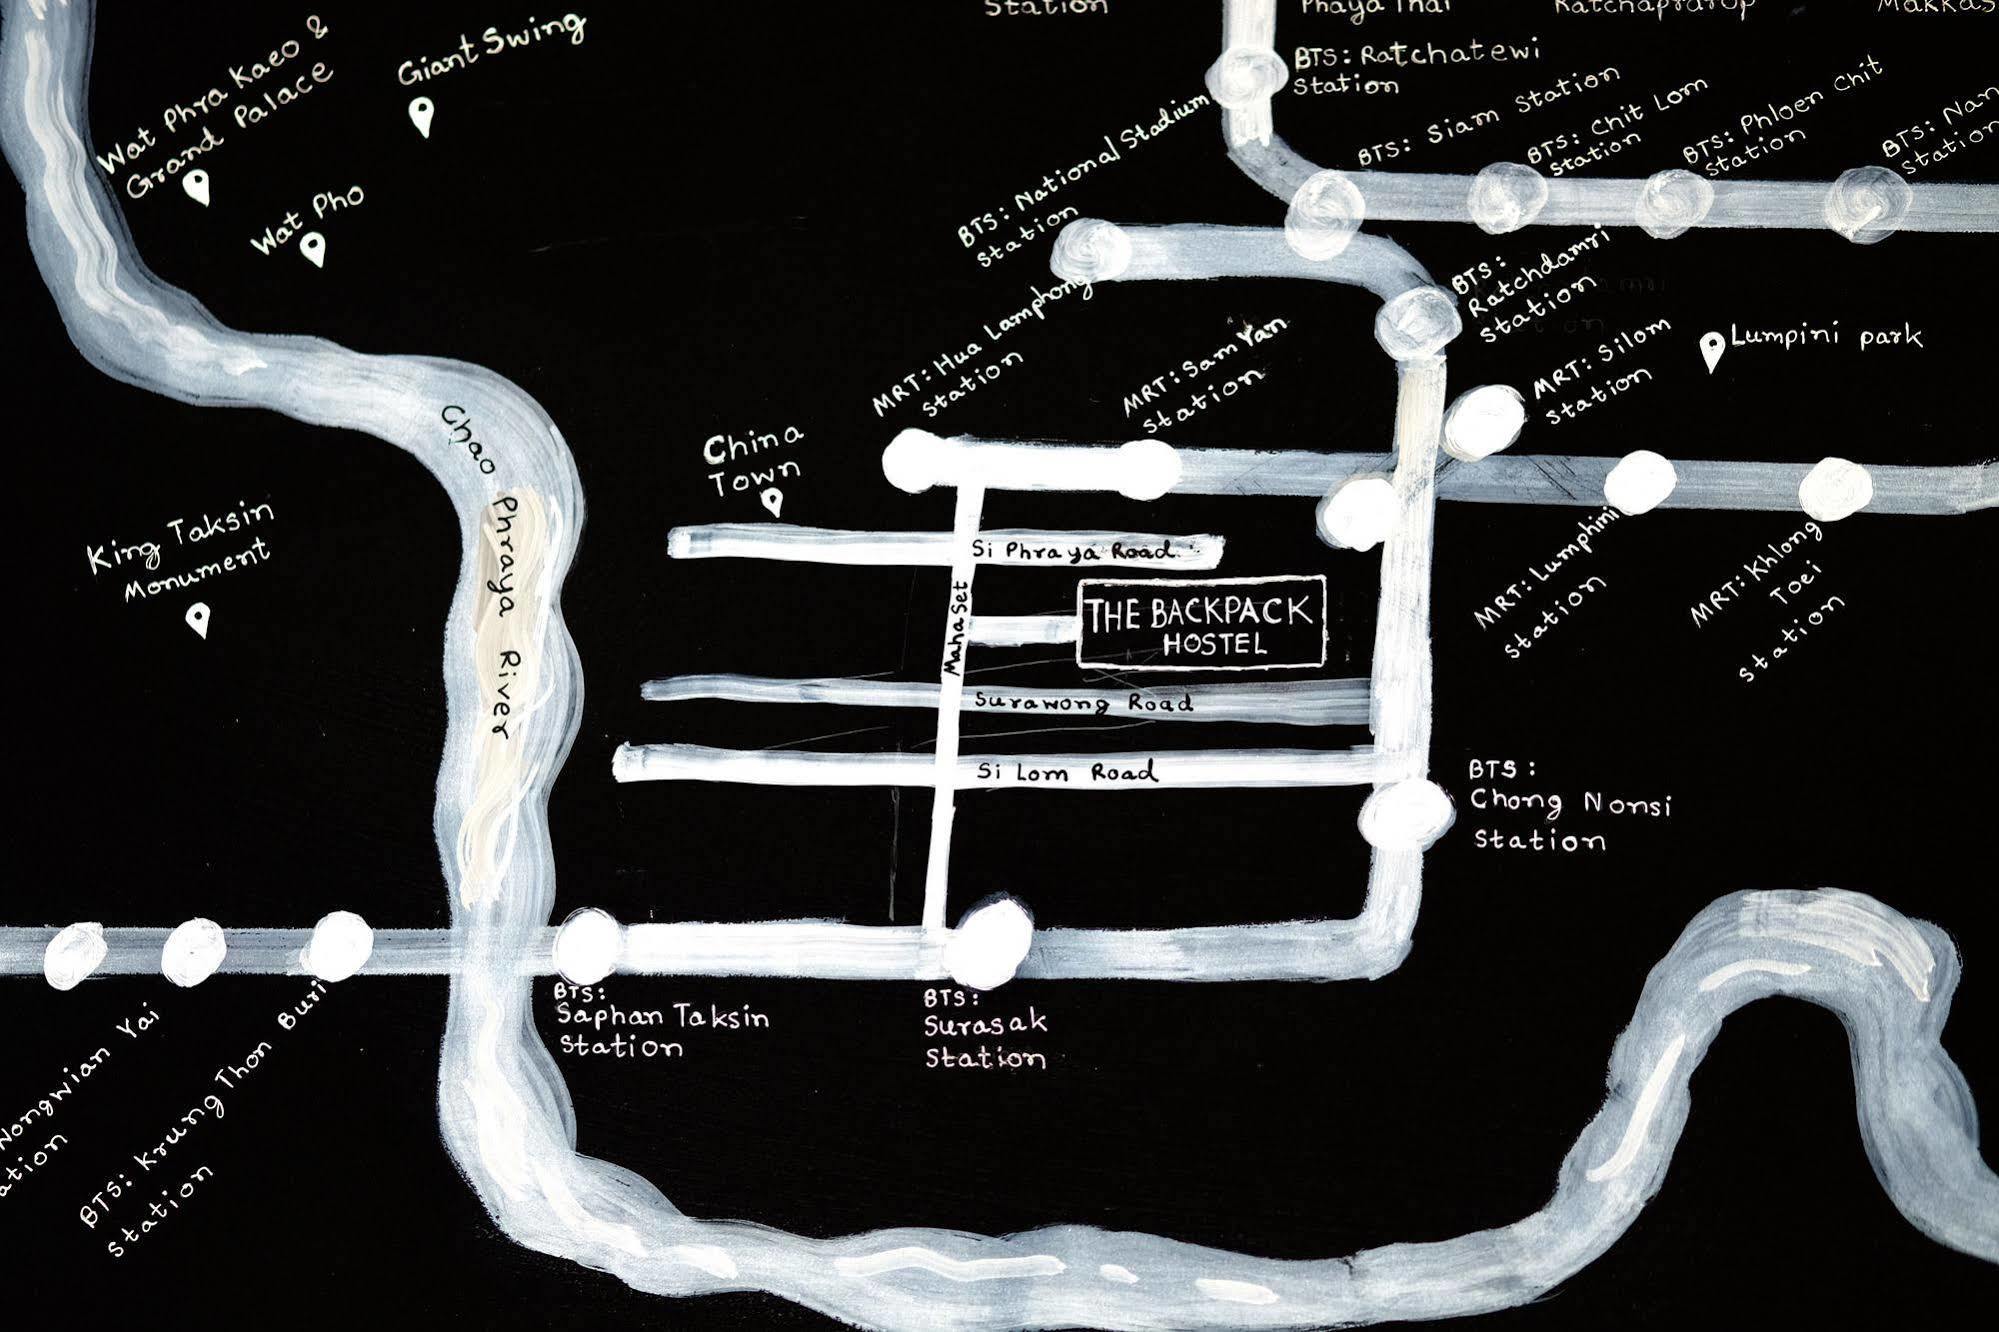 Station
Phaya Thai
Ratchaprarop
Wat Phra Kaeo &
Grand Palace
Giant Swing
Wat Pho
BTS: Ratchatewi
Station
BTS: National Stadium
Station
BTS: Siam Station
BTS: Chit Lom
Station
BTS: Phloen Chit
Station
BTS: Nan
Station
BTS:
Ratchdamri
Station
MRT: Hua Lamphong
Station
MRT: Sam Yan
Station
MRT: Silom
Station
Lumpini park
China
Town
Chao Phraya River
King Taksin
Monument
Si Phraya Road
Maha Set
THE BACKPACK
HOSTEL
MRT: Lumphini
Station
MRT: Khlong
Toei
Station
Surawong Road
Si Lom Road
BTS:
Chong Nonsi
Station
BTS:
Saphan Taksin
Station
BTS:
Surasak
Station
Nongwian Yai
ation
BTS: Krung Thon Buri
Station